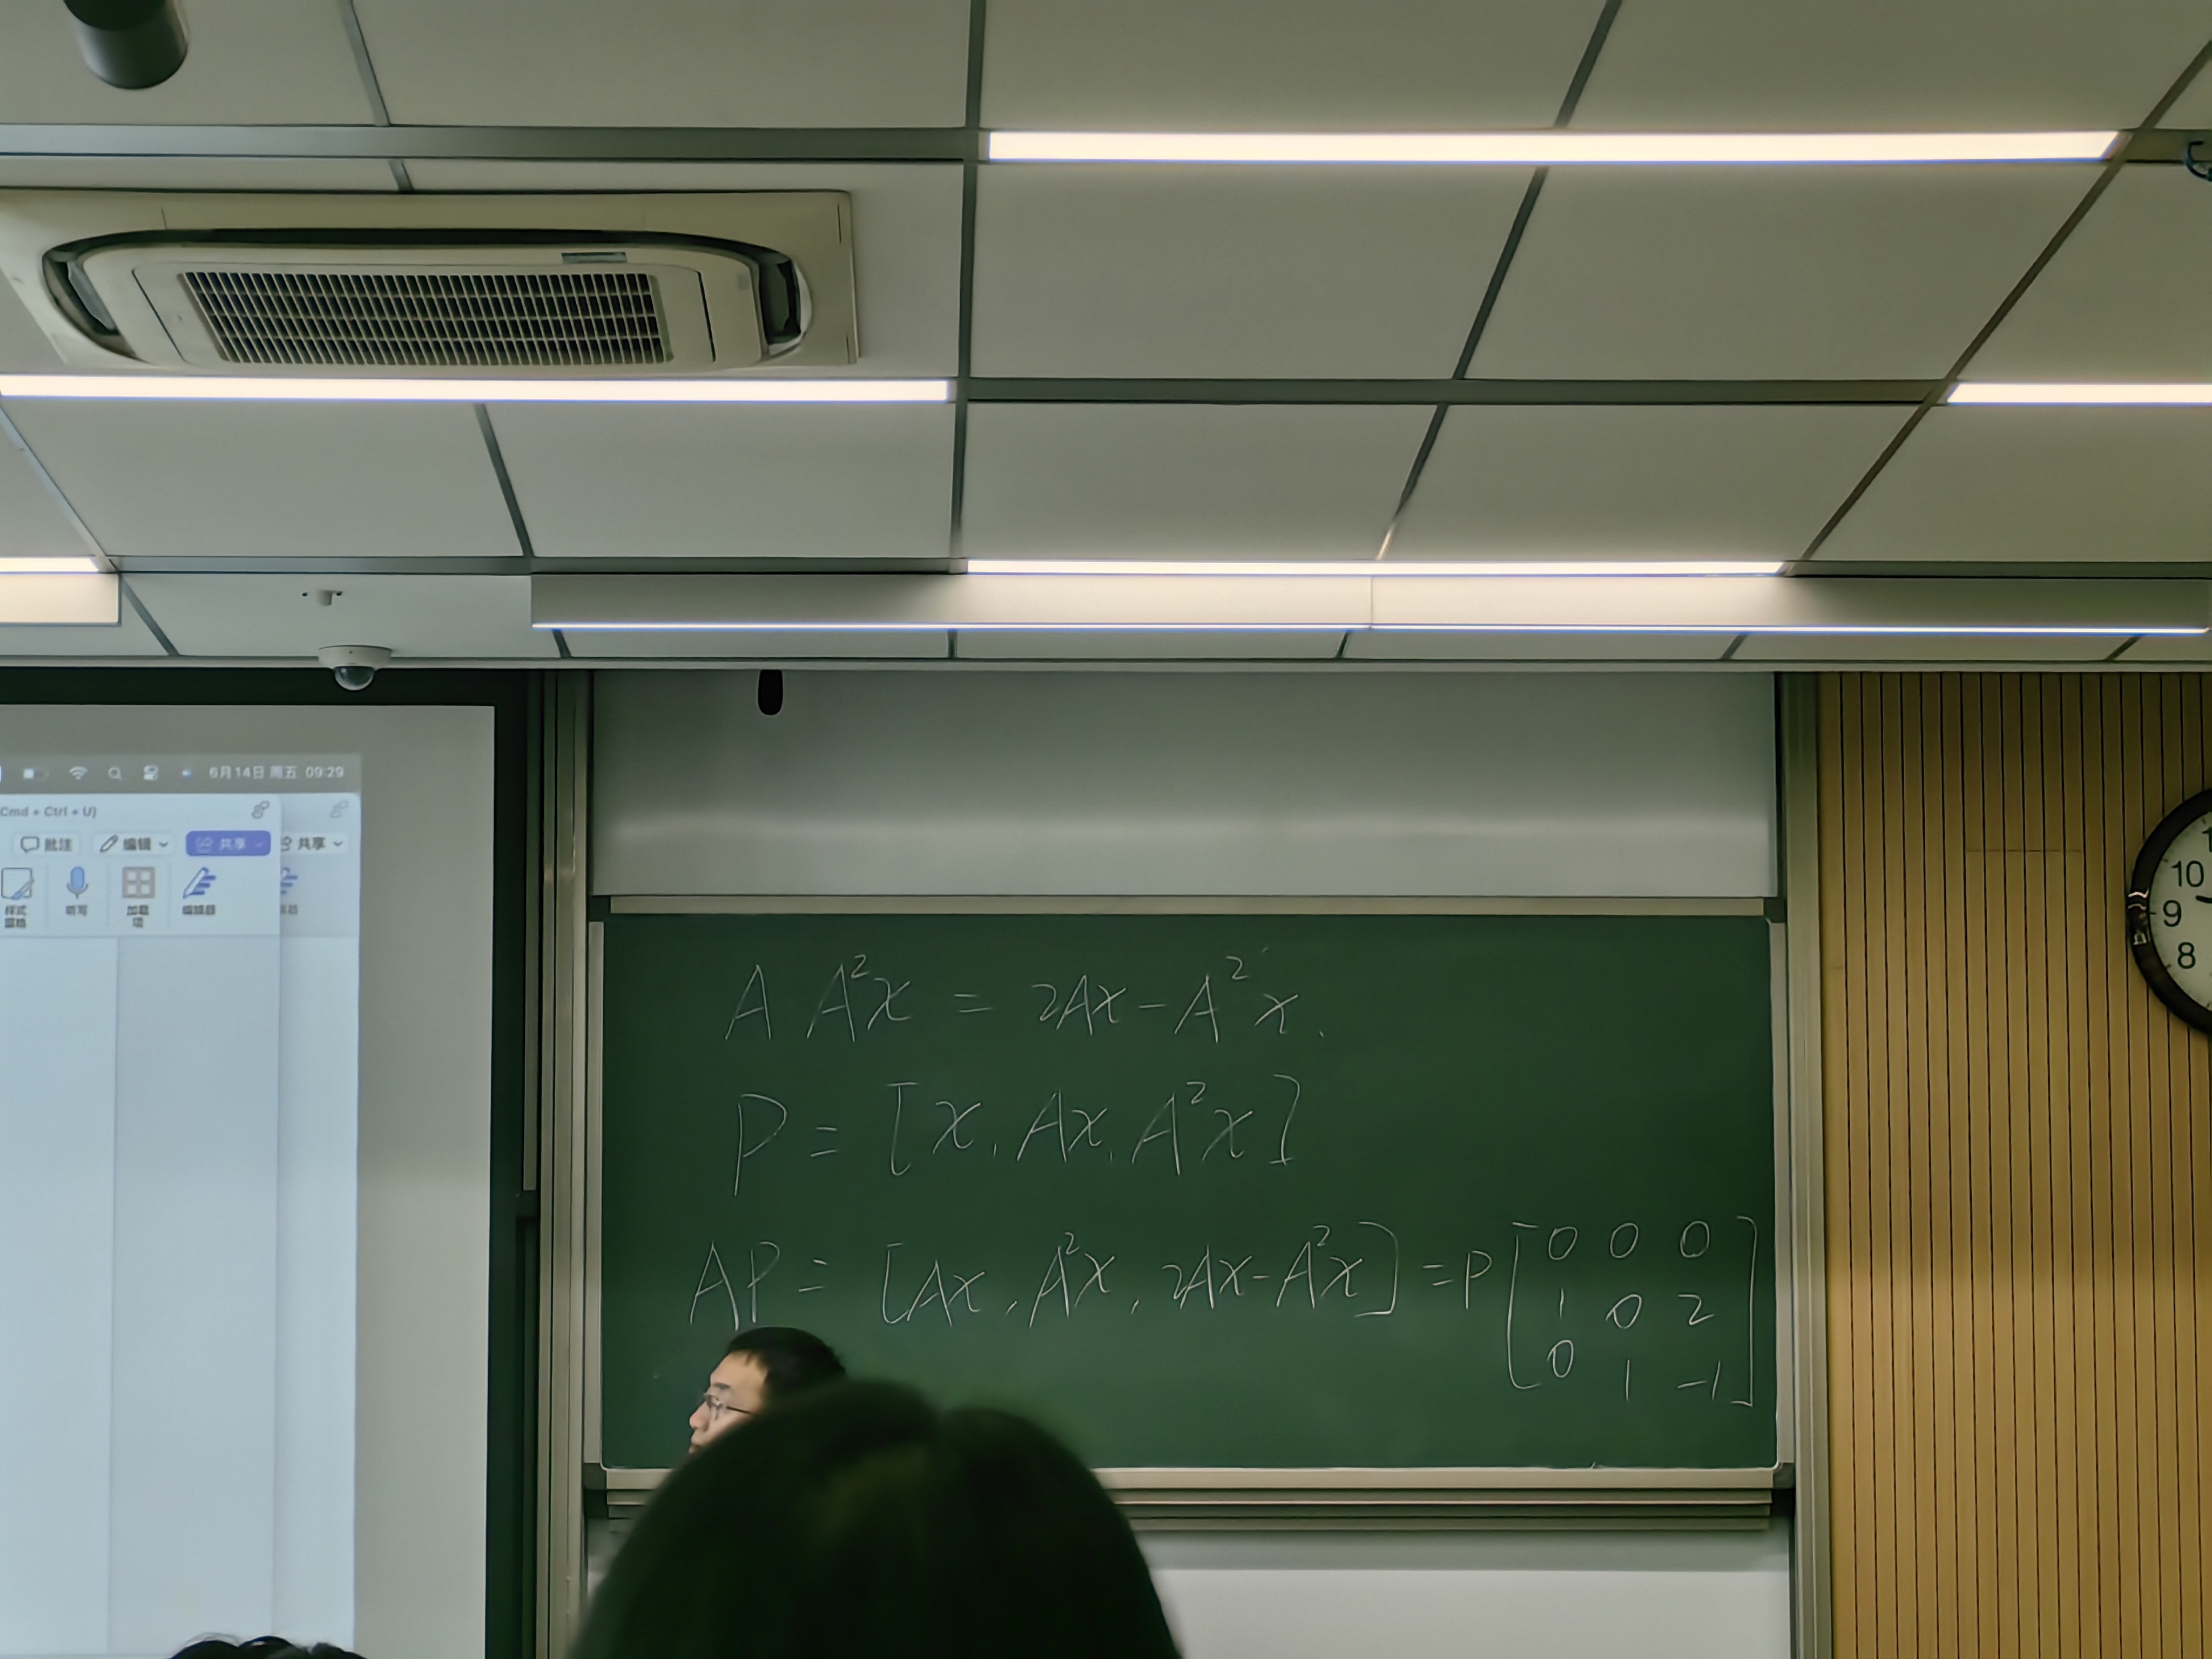 6月14日 周五 09:29
Cmd + Ctrl + U)
批注 编辑 共享 共享
样式
窗格
听写 加载
项
编辑器
A A²x = 2Ax - A²x.
P = [x, Ax, A²x]
AP = [Ax, A²x, 2Ax-A²x] = P [0 0 0
1 0 2
0 1 -1]
10
9
8